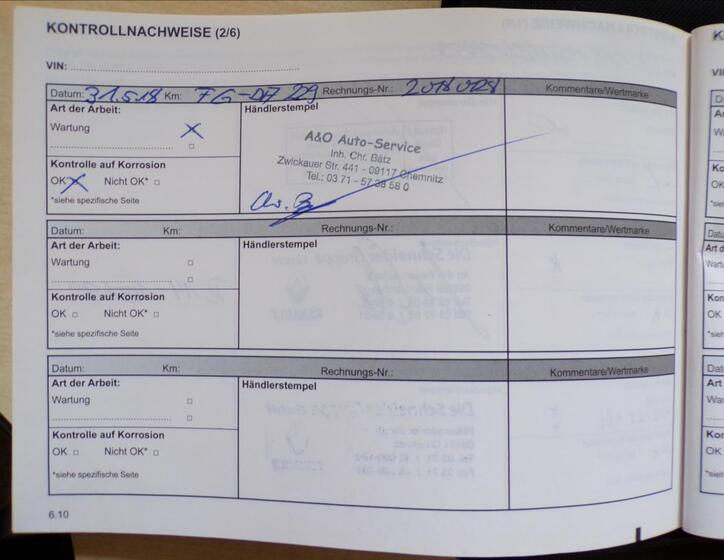 KONTROLLNACHWEISE (2/6)
VIN:
Datum: 31.5.18 Km: FG-DA 229 Rechnungs-Nr.: 2018028 Kommentare/Wertmarke
Art der Arbeit: Händlerstempel
Wartung X
Kontrolle auf Korrosion
OK X Nicht OK*
*siehe spezifische Seite
A&O Auto-Service
Inh. Chr. Bätz
Zwickauer Str. 441 - 09117 Chemnitz
Tel.: 03 71 - 57 38 58 0
Datum: Km: Rechnungs-Nr.: Kommentare/Wertmarke
Art der Arbeit: Händlerstempel
Wartung
Kontrolle auf Korrosion
OK Nicht OK*
*siehe spezifische Seite
Datum: Km: Rechnungs-Nr.: Kommentare/Wertmarke
Art der Arbeit: Händlerstempel
Wartung
Kontrolle auf Korrosion
OK Nicht OK*
*siehe spezifische Seite
6.10